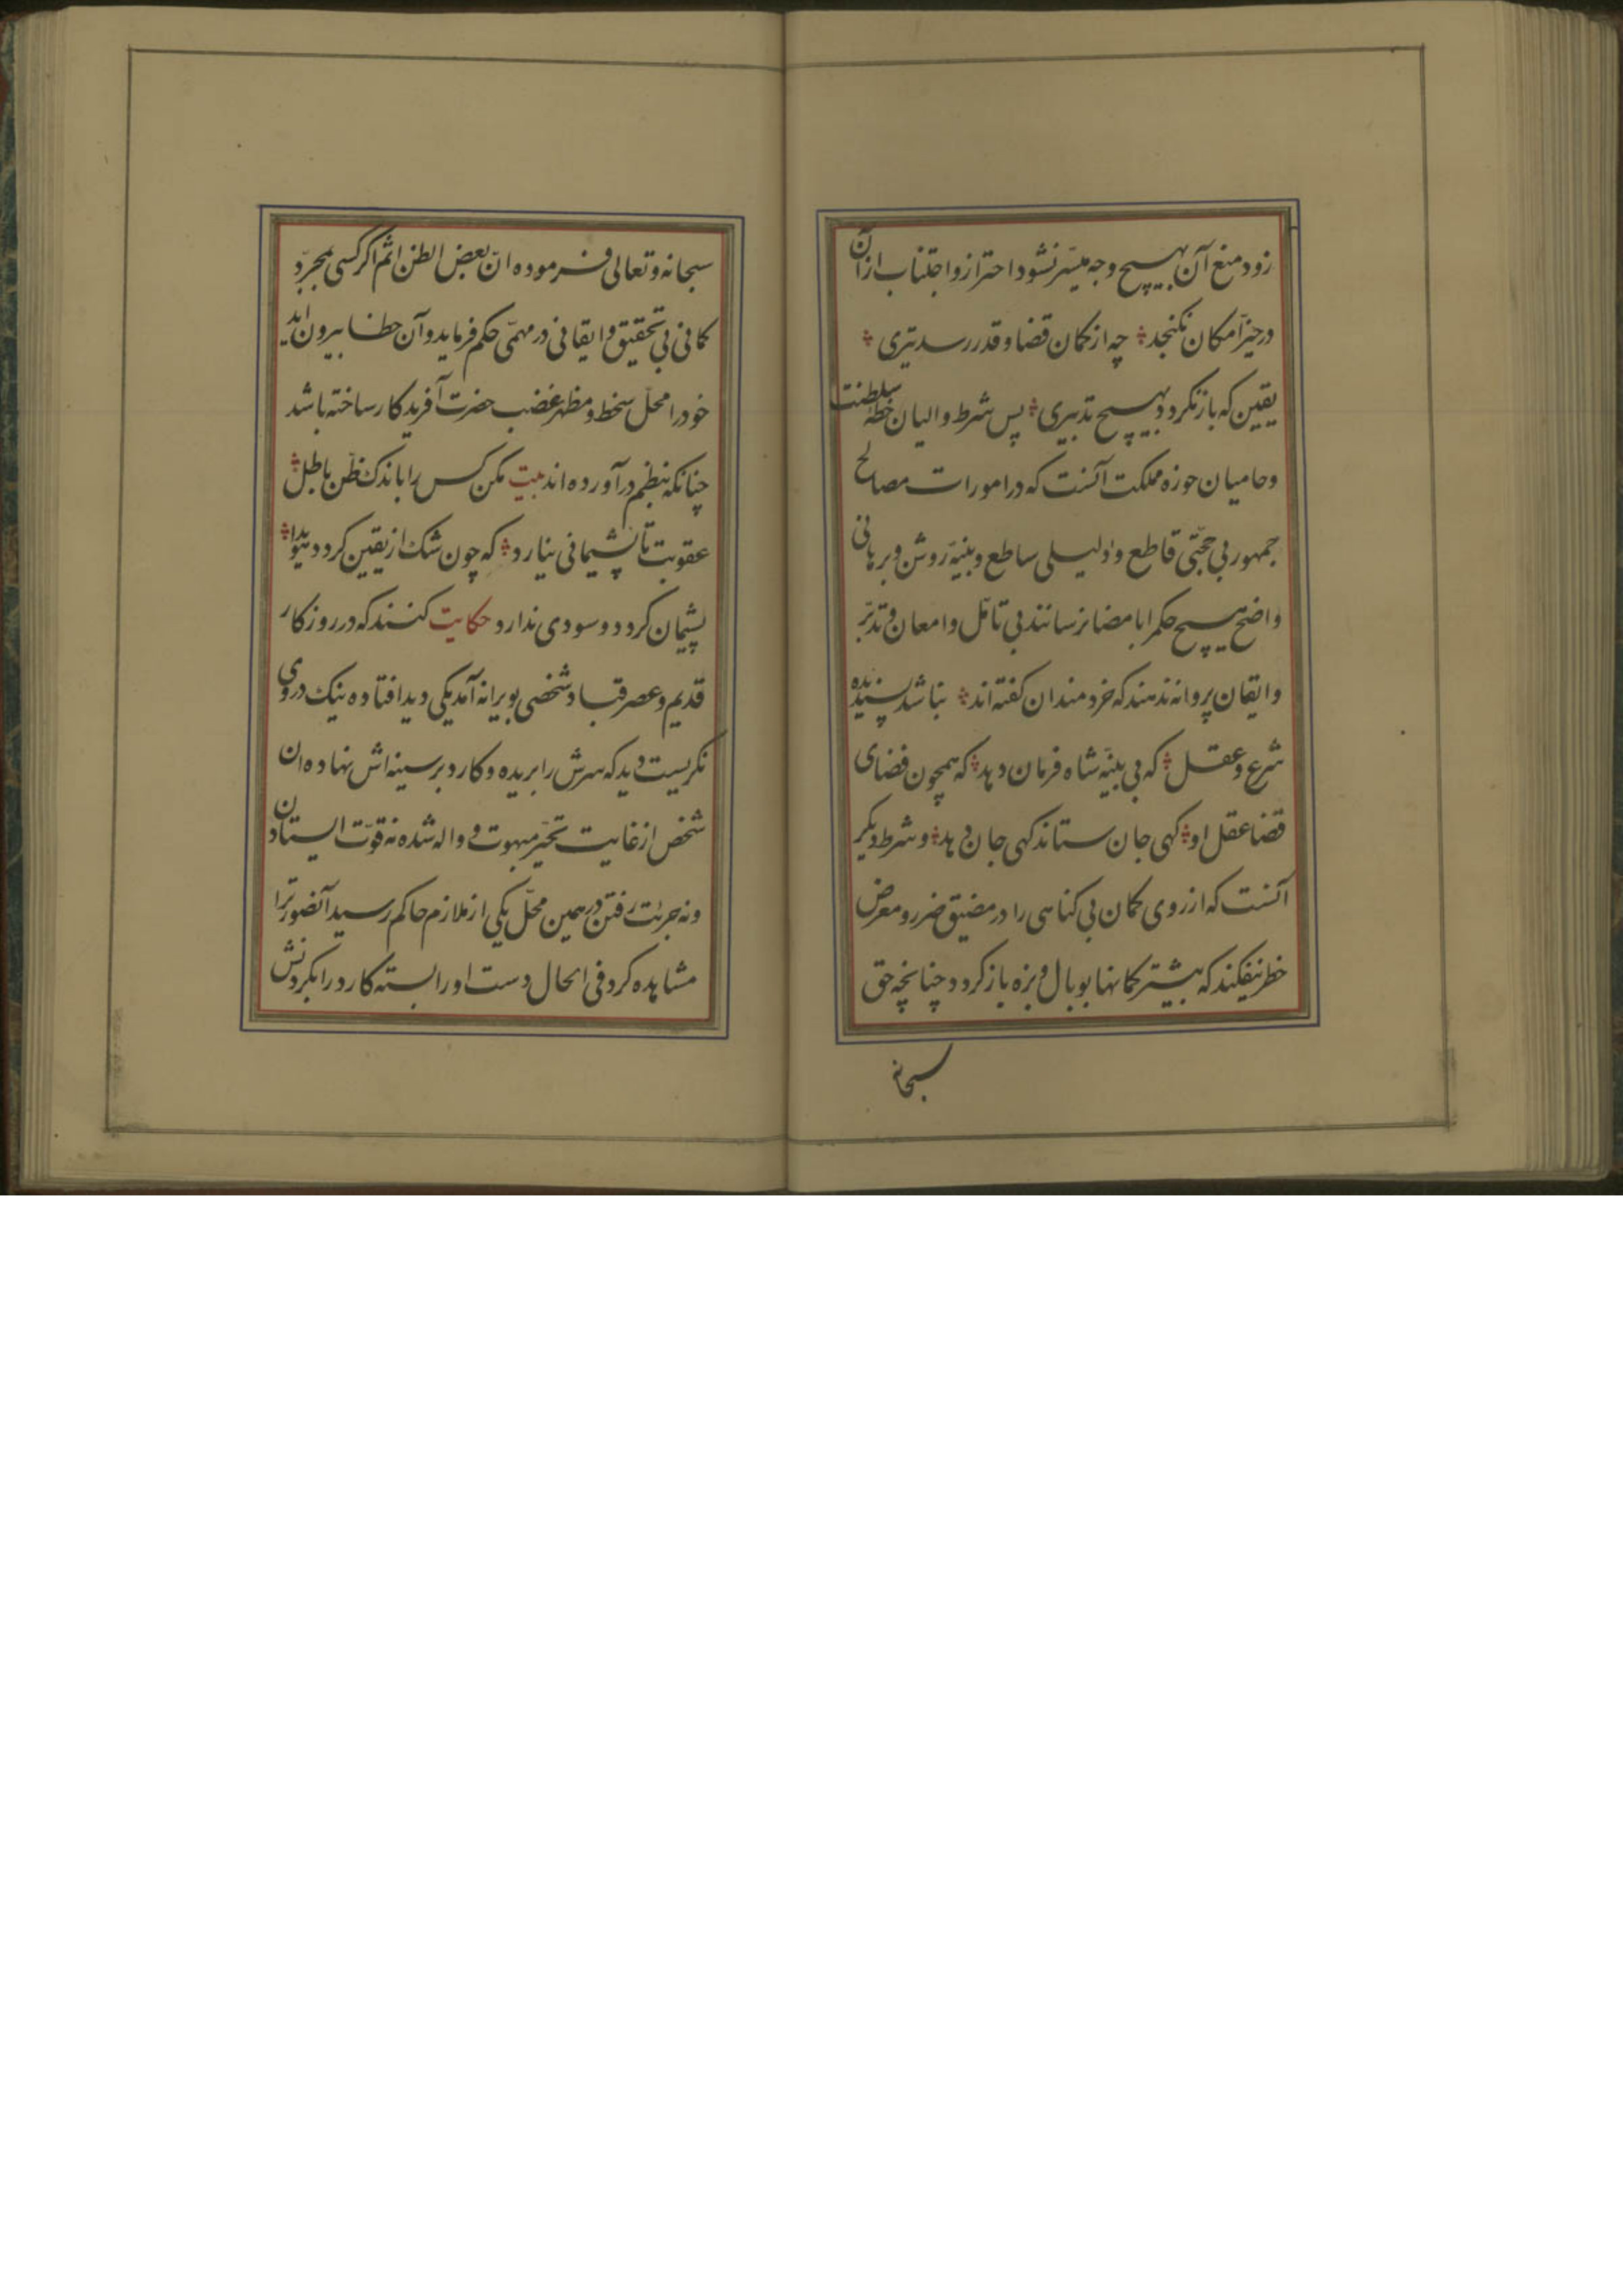 زود منع آن بهیچ وجه میسّر نشود احتراز و اجتناب ازان
در حیّز امکان نکنجد چه از کمان قضا و قدر رسد تیری
یقین که باز نکردد بهیچ تدبیری پس شرط والیان خطهٔ سلطنت
و حامیان حوزه مملکت آنست که در امورات مصالح
جمهور بی حجّتی قاطع و دلیلی ساطع و بینهٔ روش و برهانی
واضح هیچ حکم را بامضا نرسانند بی تامّل و امعان و تدبّر
و ایقان پروانه ندهند که خردمندان کفته اند نباشد پسندیده
شرع و عقل که بی بینّه شاه فرمان دهد که همچون قضای
قضا عقل او کهی جان ستاند کهی جان دهد و شرط دیکر
آنست که از روی کمان بی کناهی را در مضیق ضرر و معرض
خطر نیفکند که بیشتر کمانها بوبال و بزه باز کردد چنانچه حق
سبحانه
سبحانه و تعالی فرموده انّ بعض الظن اثم اکر کسی بمجرّد
کمانی بی تحقیق و ایقانی در مهمّی حکم فرماید و آن خطا بیرون اید
خود را محلّ سخط و مظهر غضب حضرت آفریدکار ساخته باشد
چنانکه بنظم در آورده اند بیت مکن کس را باندک ظنّ باطل
عقوبت تا پشیمانی نیارد که چون شک از یقین کردد هویدا
پشیمان کردد و سودی ندارد حکایت کنند که در روزکار
قدیم و عصر قباد شخصی بویرانه آمد یکی دید افتاده نیک در وی
نکریست دید که سرش را بریده و کارد بر سینه اش نهاده ان
شخص از غایت تحیّر مبهوت و واله شده نه قوّت ایستادن
و نه جرئت رفتن در همین محلّ یکی از ملازم حاکم رسید آنصورترا
مشاهده کرد فی الحال دست او را بسته کارد را بکردنش